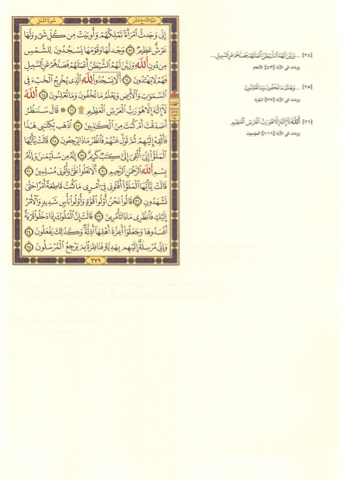 إِنِّي وَجَدتُّ ٱمْرَأَةً تَمْلِكُهُمْ وَأُوتِيَتْ مِن كُلِّ شَىْءٍ وَلَهَا
عَرْشٌ عَظِيمٌ ۝٢٣ وَجَدتُّهَا وَقَوْمَهَا يَسْجُدُونَ لِلشَّمْسِ
مِن دُونِ ٱللَّهِ وَزَيَّنَ لَهُمُ ٱلشَّيْطَٰنُ أَعْمَٰلَهُمْ فَصَدَّهُمْ عَنِ ٱلسَّبِيلِ
فَهُمْ لَا يَهْتَدُونَ ۝٢٤ أَلَّا يَسْجُدُوا۟ لِلَّهِ ٱلَّذِى يُخْرِجُ ٱلْخَبْءَ فِى
ٱلسَّمَٰوَٰتِ وَٱلْأَرْضِ وَيَعْلَمُ مَا تُخْفُونَ وَمَا تُعْلِنُونَ ۝٢٥ ٱللَّهُ
لَآ إِلَٰهَ إِلَّا هُوَ رَبُّ ٱلْعَرْشِ ٱلْعَظِيمِ ۝٢٦ قَالَ سَنَنظُرُ
أَصَدَقْتَ أَمْ كُنتَ مِنَ ٱلْكَٰذِبِينَ ۝٢٧ ٱذْهَب بِّكِتَٰبِى هَٰذَا
فَأَلْقِهْ إِلَيْهِمْ ثُمَّ تَوَلَّ عَنْهُمْ فَٱنظُرْ مَاذَا يَرْجِعُونَ ۝٢٨ قَالَتْ يَٰٓأَيُّهَا
ٱلْمَلَؤُا۟ إِنِّىٓ أُلْقِىَ إِلَىَّ كِتَٰبٌ كَرِيمٌ ۝٢٩ إِنَّهُۥ مِن سُلَيْمَٰنَ وَإِنَّهُۥ
بِسْمِ ٱللَّهِ ٱلرَّحْمَٰنِ ٱلرَّحِيمِ ۝٣٠ أَلَّا تَعْلُوا۟ عَلَىَّ وَأْتُونِى مُسْلِمِينَ ۝٣١
قَالَتْ يَٰٓأَيُّهَا ٱلْمَلَؤُا۟ أَفْتُونِى فِىٓ أَمْرِى مَا كُنتُ قَاطِعَةً أَمْرًا حَتَّىٰ
تَشْهَدُونِ ۝٣٢ قَالُوا۟ نَحْنُ أُو۟لُوا۟ قُوَّةٍ وَأُو۟لُوا۟ بَأْسٍ شَدِيدٍ وَٱلْأَمْرُ
إِلَيْكِ فَٱنظُرِى مَاذَا تَأْمُرِينَ ۝٣٣ قَالَتْ إِنَّ ٱلْمُلُوكَ إِذَا دَخَلُوا۟ قَرْيَةً
أَفْسَدُوهَا وَجَعَلُوٓا۟ أَعِزَّةَ أَهْلِهَآ أَذِلَّةً وَكَذَٰلِكَ يَفْعَلُونَ ۝٣٤
وَإِنِّى مُرْسِلَةٌ إِلَيْهِم بِهَدِيَّةٍ فَنَاظِرَةٌۢ بِمَ يَرْجِعُ ٱلْمُرْسَلُونَ ۝٣٥
٣٧٩
[٢٤] ...وَزَيَّنَ لَهُمُ ٱلشَّيْطَٰنُ أَعْمَٰلَهُمْ فَصَدَّهُمْ عَنِ ٱلسَّبِيلِ...
[٢٥] ...وَيَعْلَمُ مَا تُخْفُونَ وَمَا تُعْلِنُونَ
[٢٦] ٱللَّهُ لَآ إِلَٰهَ إِلَّا هُوَ رَبُّ ٱلْعَرْشِ ٱلْعَظِيمِ